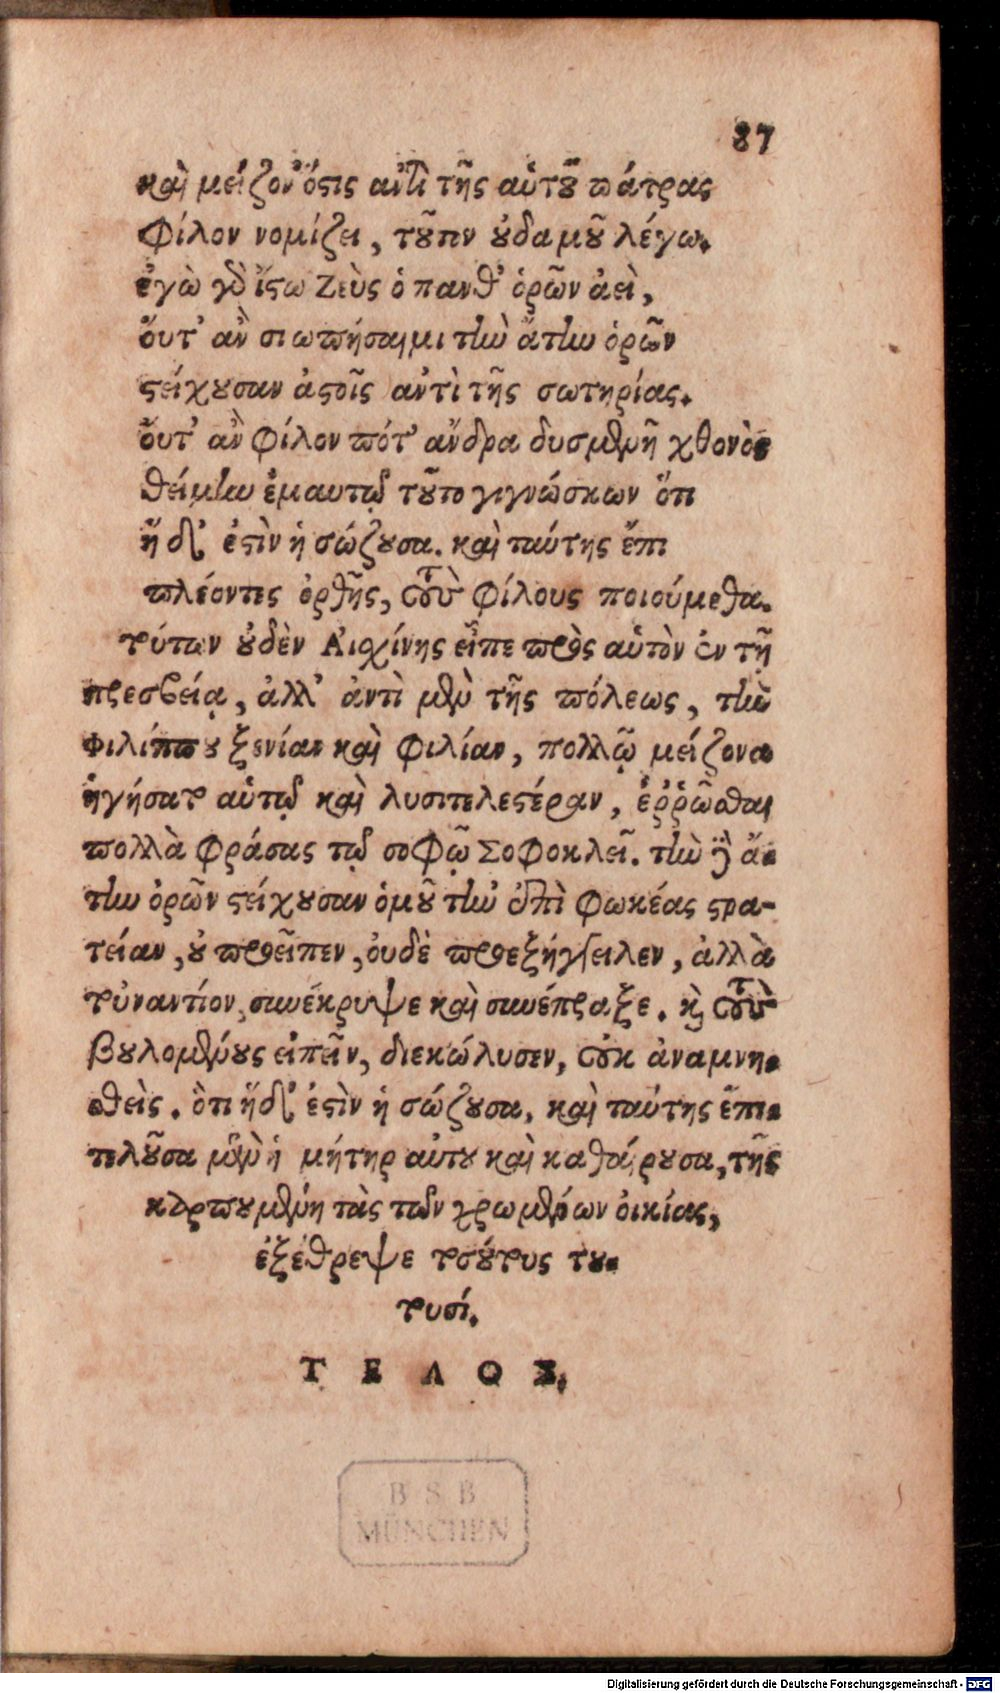 87
καὶ μείζον' ὅστις ἀντὶ τῆς αὑτοῦ πάτρας
φίλον νομίζει, τοῦτον οὐδαμοῦ λέγω.
ἐγὼ γὸ ἴστω Ζεὺς ὁ πανθ' ὁρῶν ἀεὶ,
οὔτ' ἂν σιωπήσαιμι τὴν ἄτην ὁρῶν
στείχουσαν ἀστοῖς ἀντὶ τῆς σωτηρίας.
οὔτ' ἂν φίλον πότ' ἄνδρα δυσμενῆ χθονὸς
θείμην ἐμαυτῷ τοῦτο γιγνώσκων ὅτι
ἥ δ' ἐστὶν ἡ σώζουσα. καὶ ταύτης ἔπι
πλέοντες ὀρθῆς, τοὺς φίλους ποιούμεθα.
τούτων οὐδὲν Αἰσχίνης εἶπε πρὸς αὑτὸν ἐν τῇ
πρεσβείᾳ, ἀλλ' ἀντὶ μὲν τῆς πόλεως, τὴν
Φιλίππου ξενίαν καὶ φιλίαν, πολλῷ μείζονα
ἡγήσατο αὑτῷ καὶ λυσιτελεστέραν, ἐῤῥῶσθαι
πολλὰ φράσας τῷ σοφῷ Σοφοκλεῖ. τὴν δὲ ἄ-
την ὁρῶν στείχουσαν ὁμοῦ τὴν ἐπὶ Φωκέας στρα-
τείαν, οὐ προεῖπεν, οὐδὲ προεξήγγειλεν, ἀλλὰ
τοὐναντίον, συνέκρυψε καὶ συνέπραξε. κ̀ τοὺς
βουλομένους εἰπεῖν, διεκώλυσεν, οὐκ ἀναμνη-
σθεὶς. ὅτι ἥδ' ἐστὶν ἡ σώζουσα, καὶ ταύτης ἔπι
τελοῦσα μὲν ἡ μήτηρ αὐτου καὶ καθαίρουσα, τῆς
καρπουμένη τὰς τῶν χρωμένων οἰκίας,
ἐξέθρεψε τοσούτους του-
τουσί.
ΤΕΛΟΣ.
B S B
MÜNCHEN
Digitalisierung gefördert durch die Deutsche Forschungsgemeinschaft - DFG